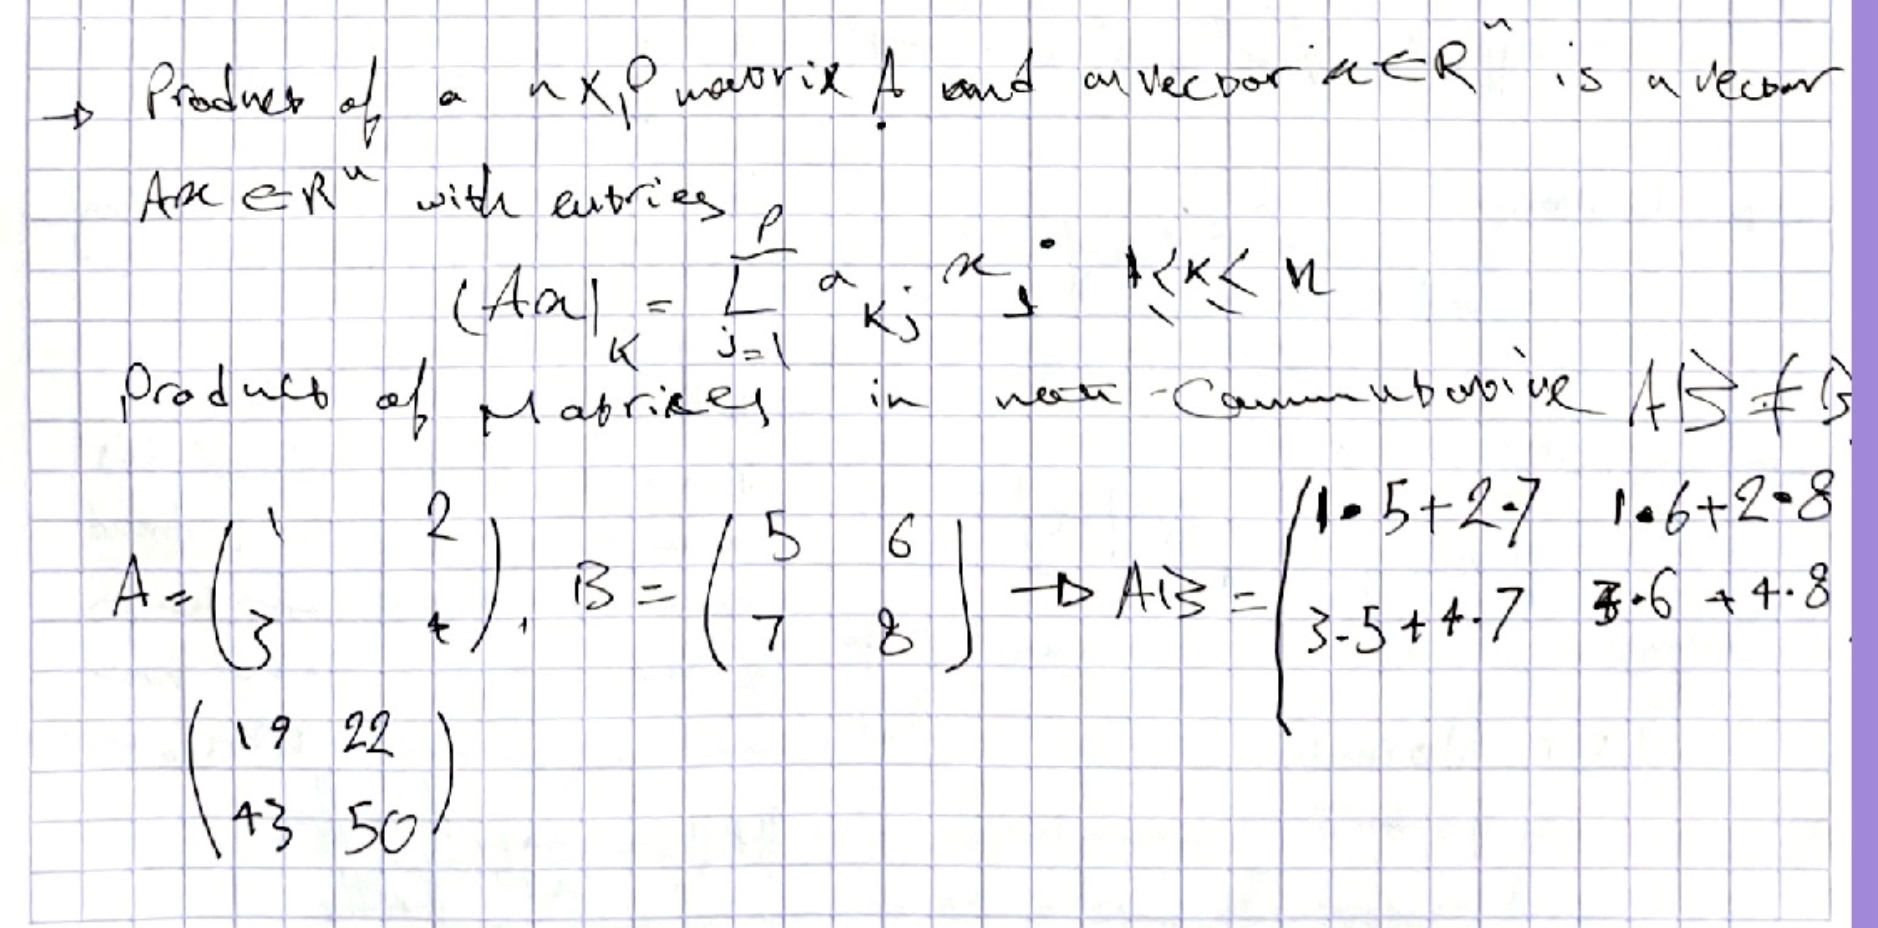 → Product of a n×p matrix A and a vector x∈Rⁿ is a vector
Ax ∈ Rⁿ with entries
(Ax)_K = Σ_{j=1}^{p} a_{Kj} x_j 1≤K≤n
Product of Matrices is non-commutative AB ≠ B
A = (1 2; 3 4), B = (5 6; 7 8) → AB = (1•5+2•7 1•6+2•8; 3•5+4•7 3•6+4•8
(19 22; 43 50)